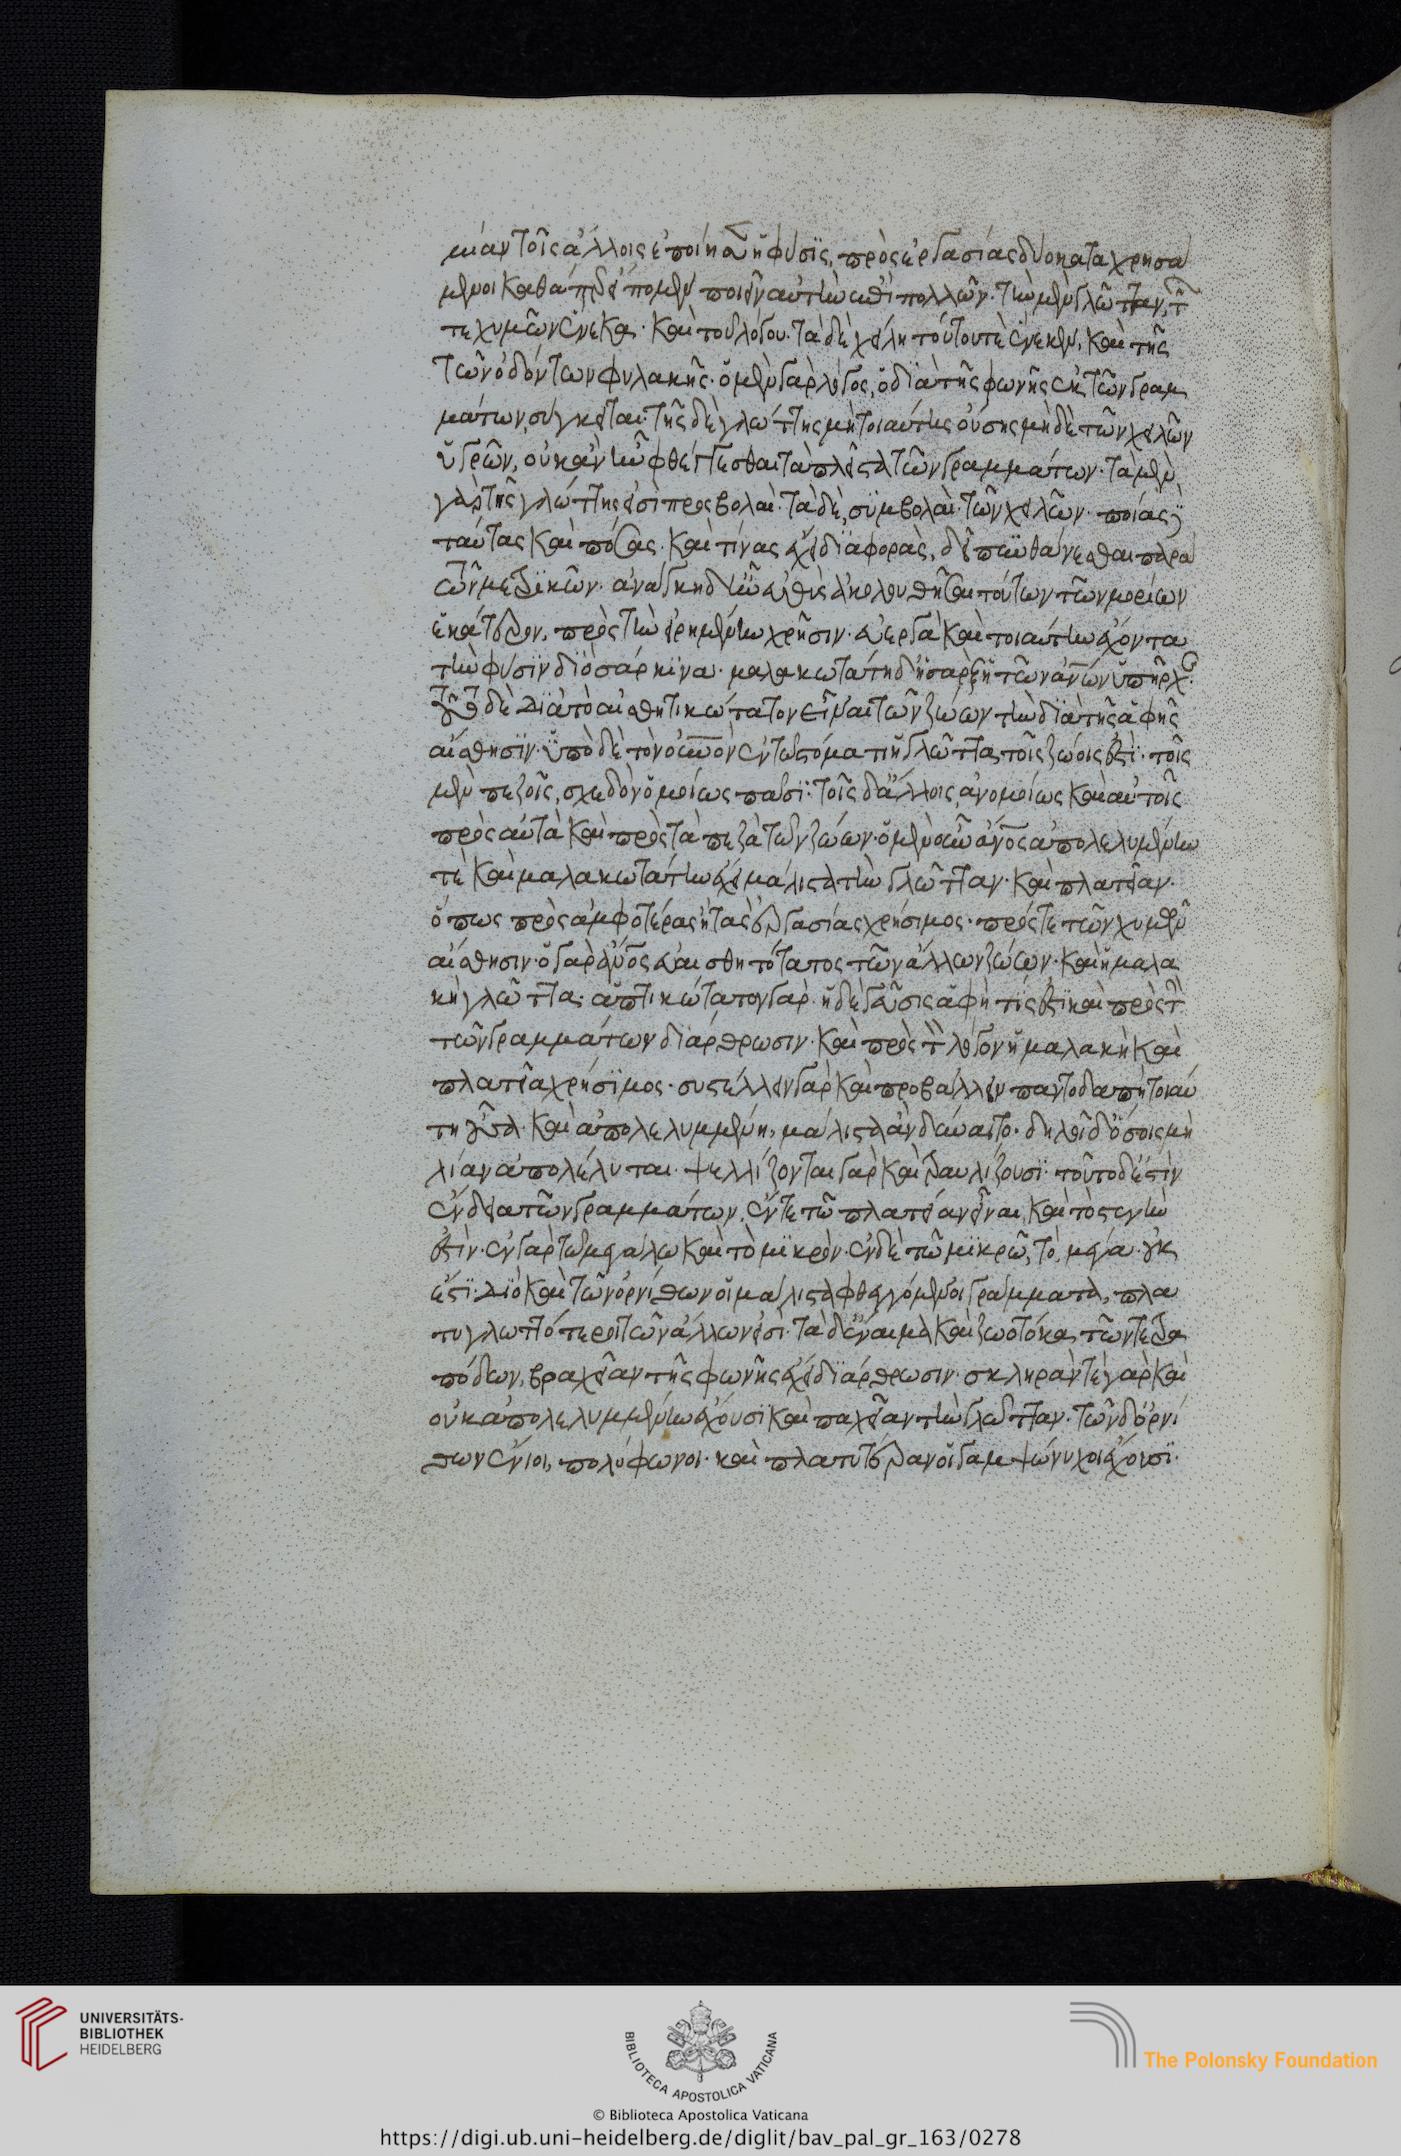 μίαν τοῖς ἄλλοις ἐποίησεν ἡ φύσις, πρὸς ἐργασίας δύο καταχρησα
μένη καθάπερ εἴπομεν ποιεῖν αὐτὴν ἐπὶ πολλῶν· τὴν μὲν γλῶτταν, τῶν
τε χυμῶν ἕνεκα· καὶ τοῦ λόγου· τὰ δὲ χείλη τούτου τὲ ἕνεκεν, καὶ τῆς
τῶν ὀδόντων φυλακῆς· ὁ μὲν γὰρ λόγος, ὁ διὰ τῆς φωνῆς ἐκ τῶν γραμ
μάτων, σύγκειται· τῆς δὲ γλώττης μὴ τοιαύτης οὔσης μὴ δὲ τῶν χειλῶν
ὑγρῶν, οὐκ ἂν ἦν φθέγγεσθαι τὰ πλεῖστα τῶν γραμμάτων· τὰ μὲν
γὰρ τῆς γλώττης εἰσὶ προσβολαὶ· τὰ δὲ, συμβολαὶ· τῶν χειλῶν· ποίας δὲ
ταύτας καὶ πόσας· καὶ τίνας ἔχει διαφορὰς, δεῖ πυνθάνεσθαι παρὰ
τῶν μετρικῶν· ἀνάγκη δ' ἦν εὐθὺς ἀκολουθῆσαι τούτων τῶν μορίων
ἑκάτερον, πρὸς τὴν εἰρημένην χρῆσιν· εὐεργὰ καὶ τοιαύτην ἔχοντα
τὴν φύσιν διὸ σάρκινα· μαλακωτάτη δ' ἡ σὰρξ ἡ τῶν ἀνῶν ὑπῆρχε·
τοῦτο δὲ διὰ τὸ αἰσθητικώτατον εἶναι τῶν ζώων τὴν διὰ τῆς ἁφῆς
αἴσθησιν· ὑπὸ δὲ τὸν οὐνὸν ἐν τῶ στόματι ἡ γλῶττα τοῖς ζώοις ἐστὶ· τοῖς
μὲν πεζοῖς, σχεδὸν ὁμοίως πᾶσι· τοῖς δ' ἄλλοις, ἀνομοίως καὶ αὐτοῖς
πρὸς αὑτὰ καὶ πρὸς τὰ πεζὰ τῶν ζώων· ὁ μὲν οὖν ἄνος ἀπολελυμένην
τὲ καὶ μαλακωτάτην ἔχει μάλιστα τὴν γλῶτταν· καὶ πλατεῖαν·
ὅπως πρὸς ἀμφοτέρας ἦ τὰς ἐργασίας χρήσιμος· πρός τε τῶν χυμῶν
αἴσθησιν· ὁ γὰρ ἄνος εὐαισθητότατος τῶν ἄλλων ζώων· καὶ ἡ μαλα
κὴ γλῶττα· ἁπτικώτατον γάρ· ἡ δὲ γεῦσις ἁφή τίς ἐστι καὶ πρὸς τὴν
τῶν γραμμάτων διάρθρωσιν· καὶ πρὸς τὸν λόγον ἡ μαλακὴ καὶ
πλατεῖα χρήσιμος· συστέλλειν γὰρ καὶ προβάλλειν παντοδαπὴ τοιαύ
τη οὖσα· καὶ ἀπολελυμμένη, μάλιστ' ἂν δύναιτο· δηλοῖ δ' ὅσοις μὴ
λίαν ἀπολέλυται· ψελλίζονται γὰρ καὶ τραυλίζουσι· τοῦτο δ' ἐστὶν
ἔνδεια τῶν γραμμάτων, ἔν τε τῶ πλατεῖαν εἶναι, καὶ τὸ στενὴν
ἐστίν· ἐν γὰρ τῶ μεγάλω καὶ τὸ μικρὸν· ἐν δὲ τῶ μικρῶ, τὸ, μέγα οὐκ
ἔστι· διὸ καὶ τῶν ὀρνίθων οἱ μάλιστα φθεγγόμενοι γράμματα, πλα
τυγλωττότεροι τῶν ἄλλων εἰσὶ· τὰ δ' ἔναιμα καὶ ζωοτόκα τῶν τετρα
πόδων, βραχεῖαν τῆς φωνῆς ἔχει διάρθρωσιν· σκληράν τὲ γὰρ καὶ
οὐκ ἀπολελυμμένην ἔχουσι καὶ παχεῖαν τὴν γλῶτταν· τῶν δ' ὀρνί
θων ἔνιοι, πολύφωνοι· καὶ πλατυτέραν οἱ γαμψώνυχοι ἔχουσι·
UNIVERSITÄTS-
BIBLIOTHEK
HEIDELBERG
BIBLIOTECA APOSTOLICA VATICANA
The Polonsky Foundation
© Biblioteca Apostolica Vaticana
https://digi.ub.uni-heidelberg.de/diglit/bav_pal_gr_163/0278